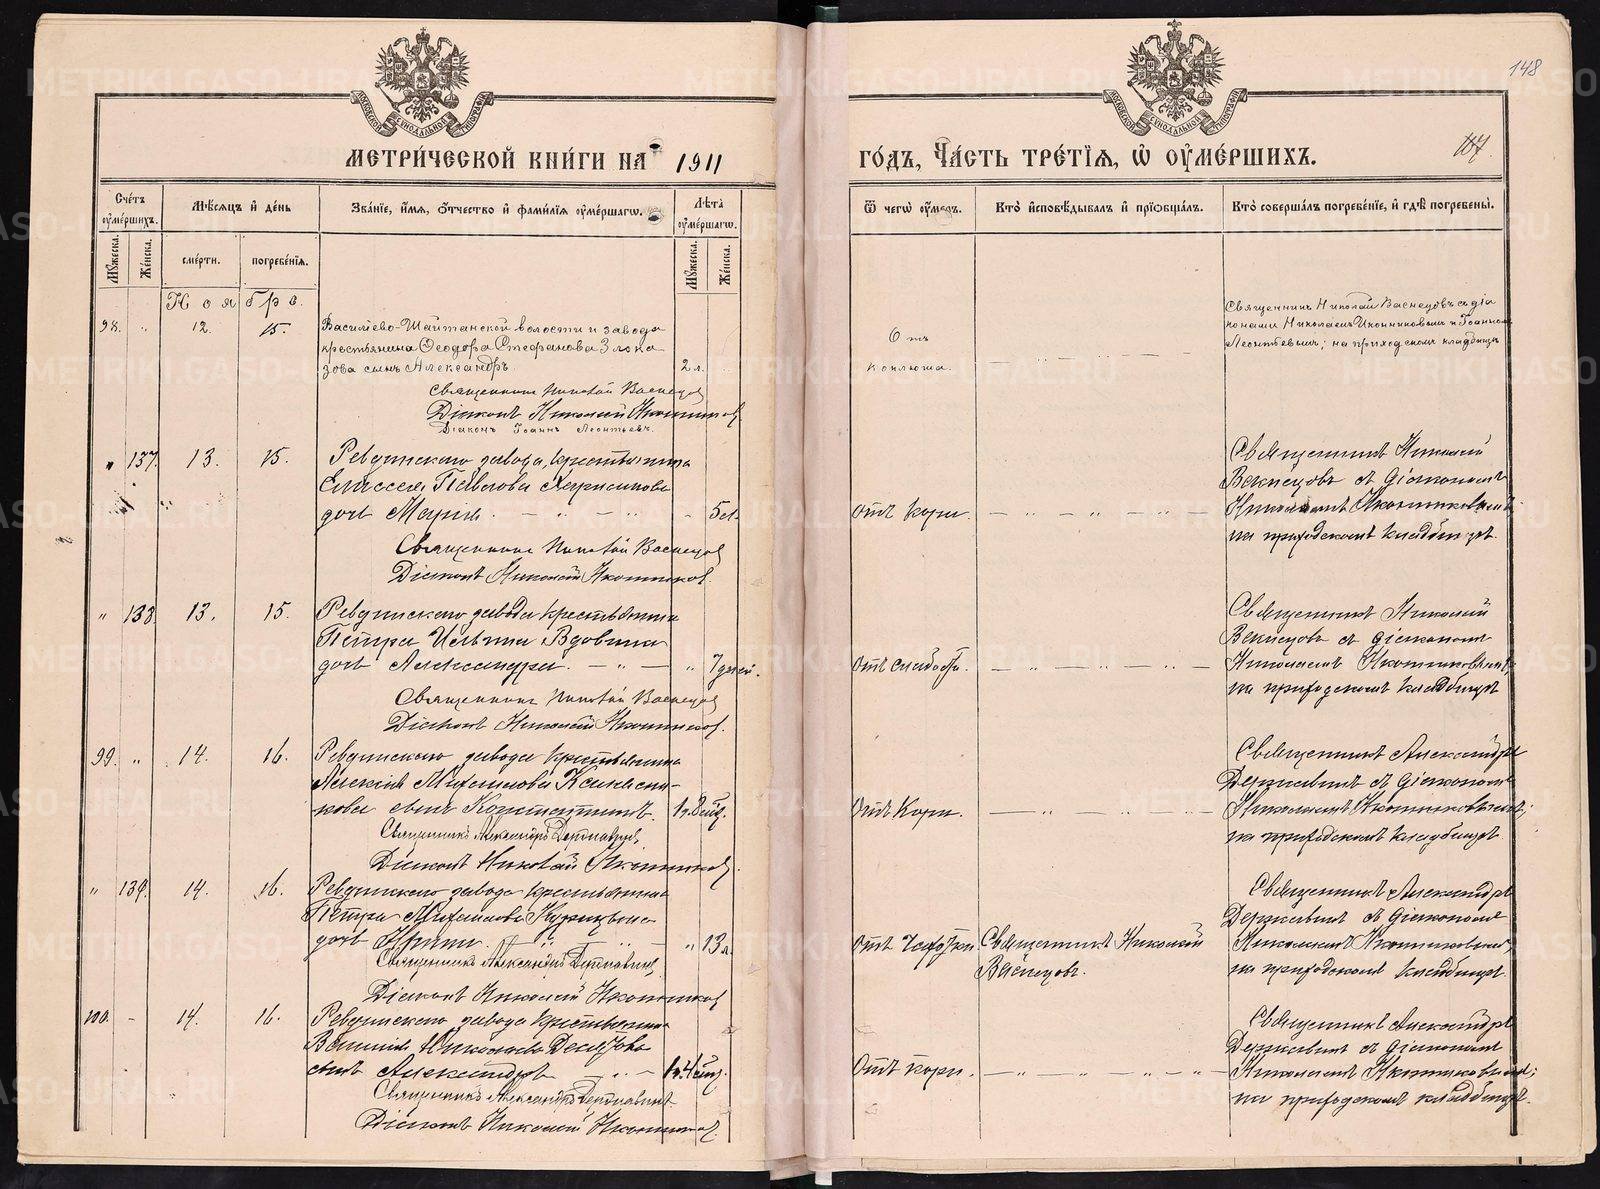 148
МЕТРИ́ЧЕСКОЙ КНИ́ГИ НА 1911
ГО́ДЪ, ЧА́СТЬ ТРЕ́ТІѦ, Ѡ҆ ОУ҆МЕ́РШИХЪ.
107.
МОСКОВСКОЙ СѴНОДАЛЬНОЙ ТИПОГРАФІИ
МОСКОВСКОЙ СѴНОДАЛЬНОЙ ТИПОГРАФІИ
Сче́тъ оу҆ме́ршихъ.
Мѣ́сѧцъ и҆ де́нь
Зва́ніе, и҆́мѧ, ѻ҆́тчество и҆ фами́лія оу҆ме́ршагѡ.
Лѣ́та оу҆ме́ршагѡ.
Мꙋ́жеска.
Же́нска.
сме́рти.
погребе́нія.
Мꙋ́жеска.
Же́нска.
Ѿ чегѡ̀ оу҆́меръ.
Кто̀ и҆сповѣ́дывалъ и҆ прїѡбща́лъ.
Кто̀ соверша́лъ погребе́нїе, и҆ гдѣ̀ погребены̀.
Ноябрь.
98. " 12. 15.
Васильево-Шайтанской волости и завода
крестьянина Ѳеодора Стефанова Злока
зова сынъ Александръ 2 л.
Священникъ Николай Васнецовъ
Діаконъ Николай Иконников
Діаконъ Іоаннъ Леонтьевъ.
Отъ
коклюша.
Священникъ Николай Васнецовъ съ діа
конами Николаемъ Иконниковымъ и Іоанномъ
Леонтьевымъ; на приходскомъ кладбищѣ
" 137. 13. 15.
Ревдинского завода, крестьянина
Павлова
дочь Марія. 5 л.
Священникъ Николай Васнецов
Діаконъ Николай Иконников.
Отъ кори.
Священникъ Николай
Васнецовъ съ діакономъ
Николаемъ Иконниковымъ;
на приходскомъ кладбищѣ.
" 138. 13. 15.
Ревдинского завода крестьянина
Петра Ильина Вдовина
дочь Александра. " 7 дней.
Священникъ Николай Васнецов
Діаконъ Николай Иконников.
Отъ слабости.
Священникъ Николай
Васнецовъ съ діакономъ
Николаемъ Иконниковымъ;
на приходскомъ кладбищѣ
99. " 14. 16.
Ревдинского завода крестьянина
Алексія Михайлова
сынъ Константинъ. 1 г. 8 мѣс.
Священникъ Александръ Державинъ
Діаконъ Николай Иконников.
Отъ кори.
Священникъ Александръ
Державинъ съ діакономъ
Николаемъ Иконниковымъ;
на приходскомъ кладбищѣ.
" 139. 14. 16.
Ревдинского завода крестьянина
Петра Михайлова
дочь " 13 л.
Священникъ Александръ Державинъ
Діаконъ Николай Иконников
Отъ чахотки.
Священникъ Николай
Васнецовъ.
Священникъ Александръ
Державинъ съ діакономъ
Николаемъ Иконниковымъ;
на приходскомъ кладбищѣ.
100. - 14. 16.
Ревдинского завода крестьянина
Василія Николаева
сынъ Александръ 1 г. 4 мѣс.
Священникъ Александръ Державинъ
Діаконъ Николай Иконников.
Отъ кори.
Священникъ Александръ
Державинъ съ діакономъ
Николаемъ Иконниковымъ;
на приходскомъ кладбищѣ.
METRIKI.GASO-URAL.RU